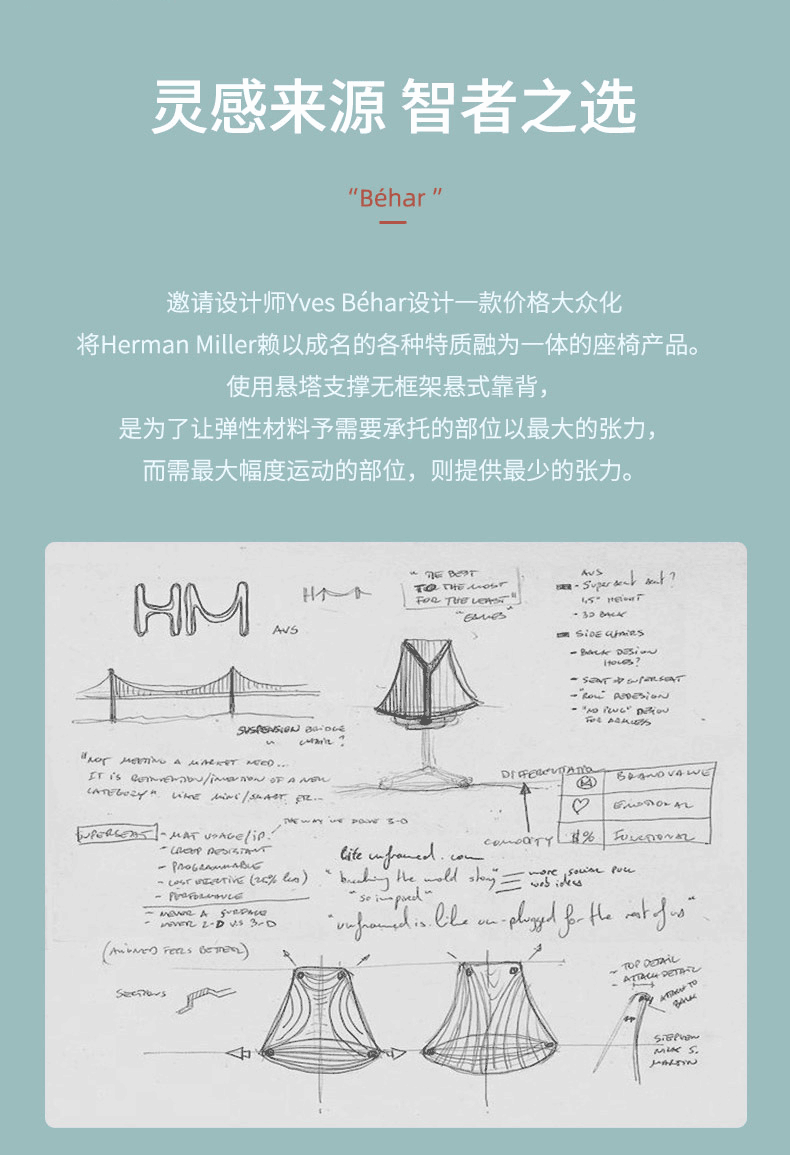 灵感来源 智者之选
“Béhar ”
邀请设计师Yves Béhar设计一款价格大众化
将Herman Miller赖以成名的各种特质融为一体的座椅产品。
使用悬塔支撑无框架悬式靠背，
是为了让弹性材料予需要承托的部位以最大的张力，
而需最大幅度运动的部位，则提供最少的张力。
HM
HM
AVS
"THE BEST
TO THE MOST
FOR THE LEAST"
"EAMES"
AVS
- Superseat seat?
1,5" HEIGHT
- 3D BACK
SIDE CHAIRS
- BACK DESIGN
HOLES?
- SEAT
- "ROLL" REDESIGN
- "NO PLUG" DESIGN
FOR ARMLESS
SUSPENSION BRIDGE
" CHAIR?
"NOT MEETING A MARKET NEED...
IT IS REINVENTION/INVENTION OF A NEW
CATEGORY" LIKE MINI/SMART, ETC..
DIFFERENTIATION
BRAND VALUE
EMOTIONAL
COMODITY
$%
FUNCTIONAL
SUPERSEAT
- MAT USAGE/IP.
THE WAY WE DRIVE 3-D
- CREEP RESISTANT
- PROGRAMMABLE
- COST EFFECTIVE (25% less)
- PERFORMANCE
- NEVER A SURFACE
- NEVER 2-D VS 3-D
life unframed . com
" breaking the mold story"
more social pull
web ideas
"so inspired"
"unframed is like un-plugged for the rest of us"
(ALIGNED FEELS BETTER)
SECTIONS
- TOP DETAIL
- ATTACH DETAIL
ATTACH TO
BACK
STEPHEN
NICK S.
MARTIN